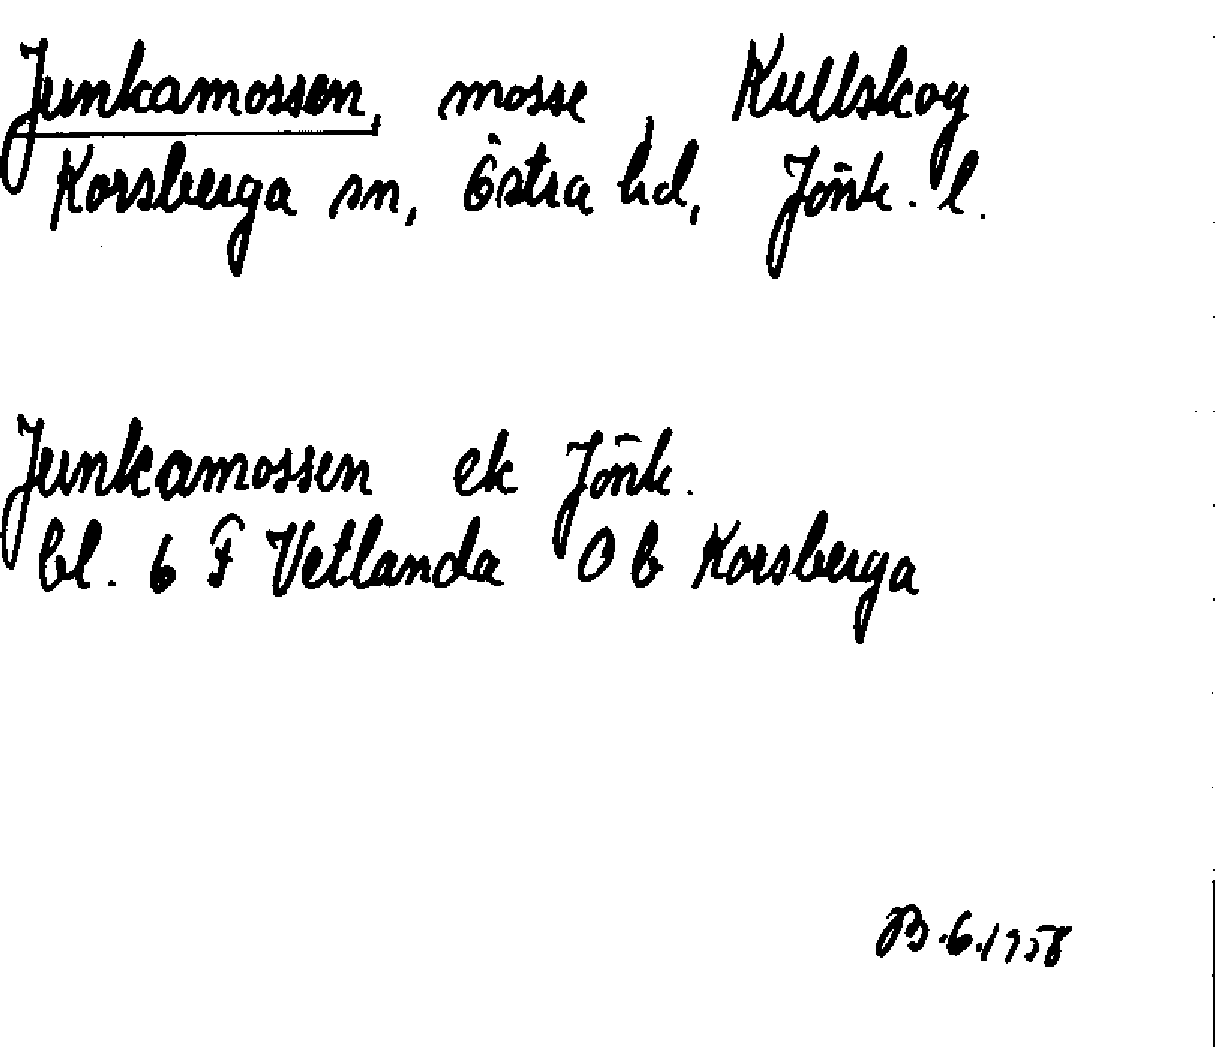 Junkamossen, mosse, Kullskog
Korsberga sn, Östra hd, Jönk. l.
Junkamossen ek Jönk.
bl. 6 F Vetlanda O b Korsberga
B.G.1958